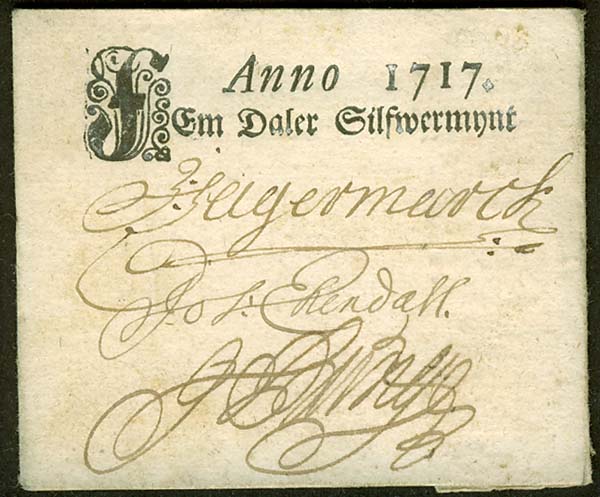 Anno 1717.
FEm Daler Silfwermynt
Fägermarck
Jos: Ekendall.